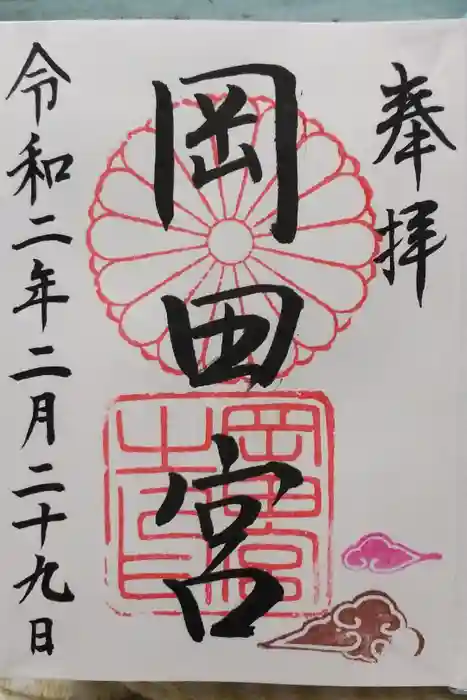 奉拝
岡田宮
岡田宮
之印
令和二年二月二十九日